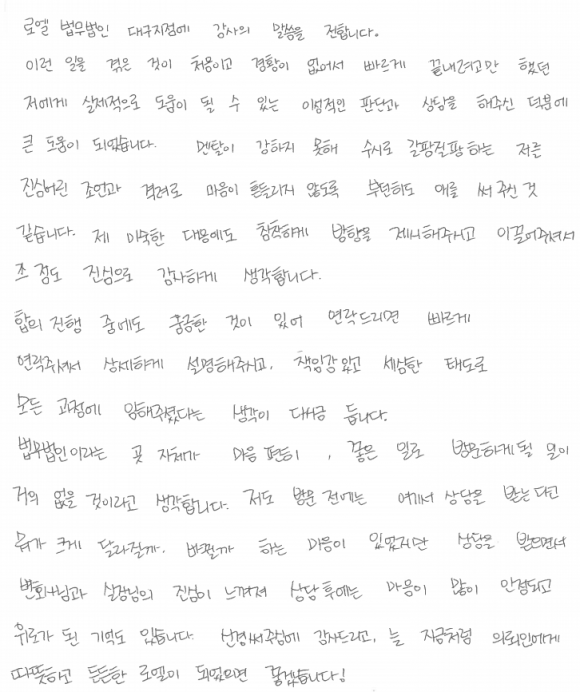 로엘 법무법인 대구지점에 감사의 말씀을 전합니다.
이런 일을 겪은 것이 처음이고 경황이 없어서 빠르게 끝내려고만 했던
저에게 실제적으로 도움이 될 수 있는 이성적인 판단과 상담을 해주신 덕분에
큰 도움이 되었습니다. 멘탈이 강하지 못해 수시로 갈팡질팡하는 저를
진심어린 조언과 격려로 마음이 흔들리지 않도록 부던히도 애를 써 주신 것
같습니다. 제 미숙한 대응에도 침착하게 방향을 제시해주시고 이끌어주셔서
점도 진심으로 감사하게 생각합니다.
합의 진행 중에도 궁금한 것이 있어 연락드리면 빠르게
연락주셔서 상세하게 설명해주시고, 책임감있고 세심한 태도로
모든 과정에 임해주셨다는 생각이 대서금 듭니다.
법무법인이라는 곳 자체가 마음 편히, 좋은 일로 방문하게 될 일이
거의 없을 것이라고 생각합니다. 저도 방문 전에는 여기서 상담을 받는다고
뭐가 크게 달라질까, 바뀔까 하는 마음이 있었지만 상담을 받으면서
변호사님과 실장님의 진심이 느껴져 상담 후에는 마음이 많이 안정되고
위로가 된 기억도 있습니다. 신경써주심에 감사드리고, 늘 지금처럼 의뢰인에게
따뜻하고 든든한 로엘이 되었으면 좋겠습니다!